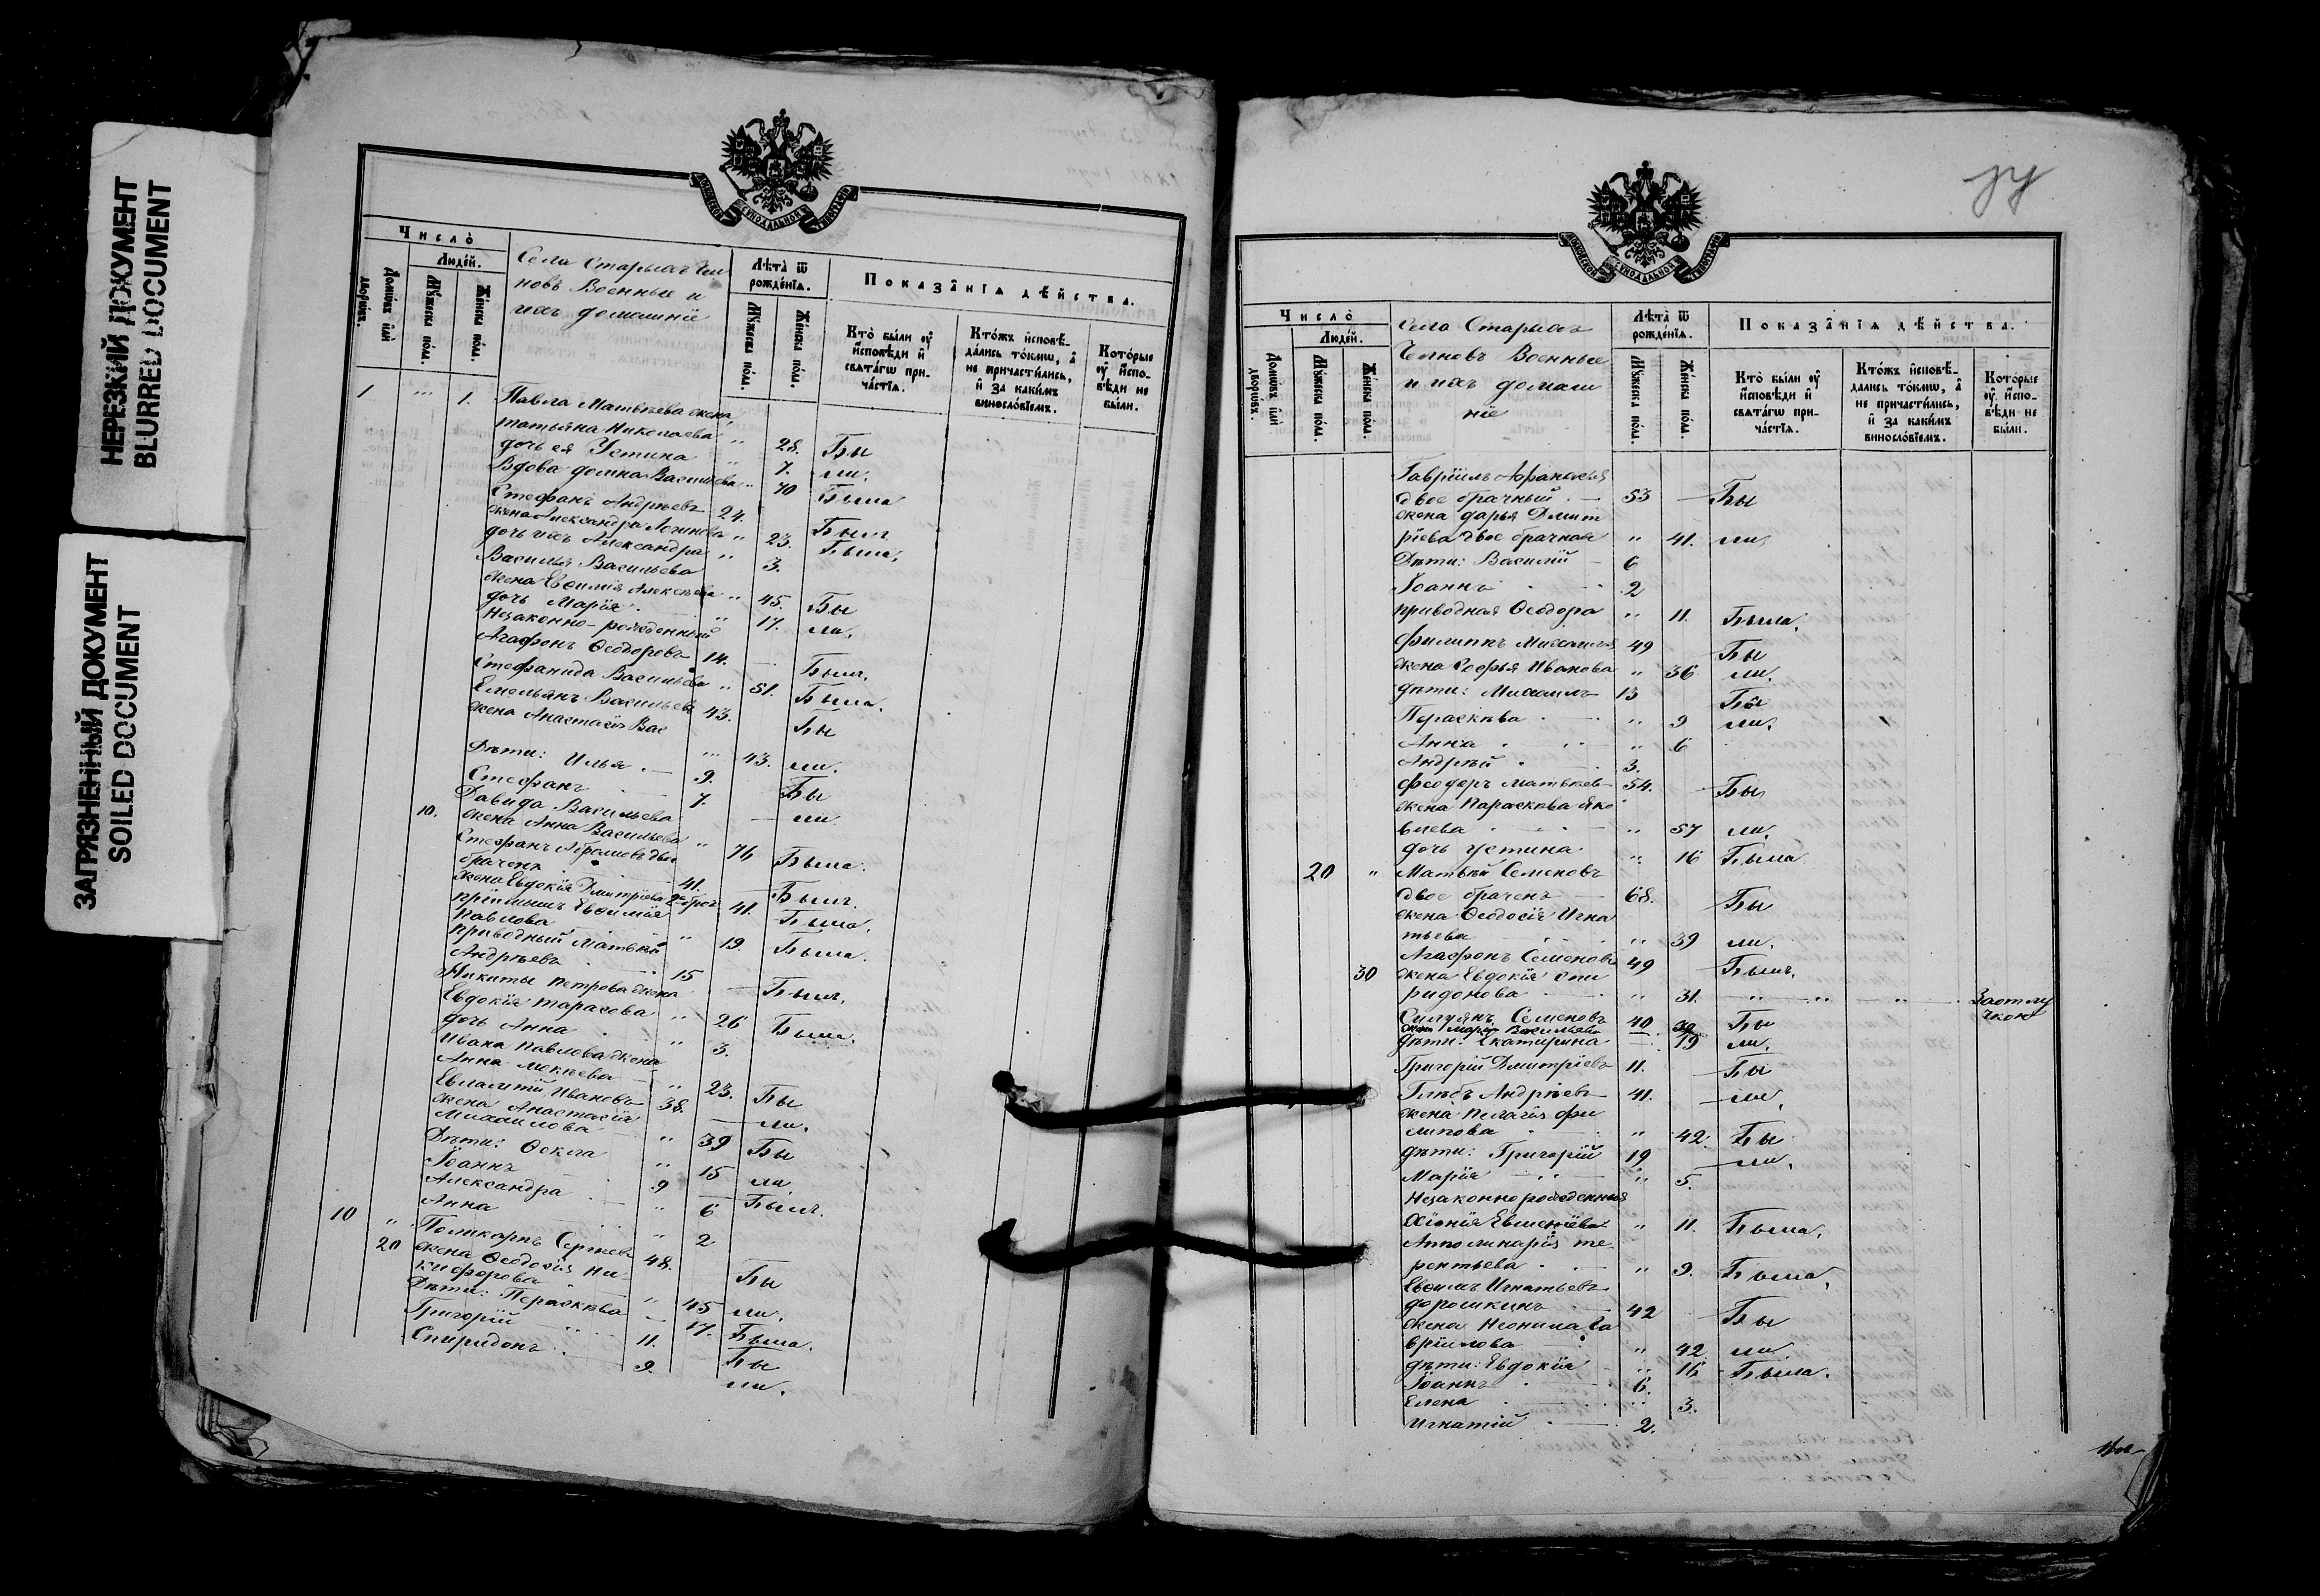 НЕРЕЗКИЙ ДОКУМЕНТ
BLURRED DOCUMENT
ЗАГРЯЗНЕННЫЙ ДОКУМЕНТ
SOILED DOCUMENT
МОСКОВСКОЙ СѴНОДАЛЬНОЙ ТИПОГРАФІИ
Число̀
Людéй.
Домѡвъ и҆лѝ дворѡвъ.
Мꙋ́жеска пóла.
Жéнска пóла.
Села Старыхъ Чел
новъ Военные и
ихъ домашніе
Лѣ́та ѿ рождéнїѧ.
Мꙋ́жеска пóла.
Жéнска пóла.
Показа̑нїѧ дѣ́йства.
Кто̀ бы́ли ᲂу҆ и҆сповѣди и҆ свѧта́гѡ прича́стїѧ.
Кто́жъ и҆сповѣ́дались то́кмѡ, а҆ не причасти́лись, и҆ за каки́мъ винослóвїемъ.
Кото́рые ᲂу҆ и҆споʹвѣди не бы́ли.
1 ... 1. Павла Матвѣева жена
татьяна Николаева " 28. Бы
дочь ея Устина " 7. ли.
Вдова домна Васильева " 70 Была
Стефанъ Андрѣевъ 24. Былъ
жена Александра Логинова " 23. Была,
дочь ихъ Александра " 3.
Василья Васильева
жена Евѳимія Алексѣева " 45. Бы
дочь Марія " 17. ли,
Незаконно-рожденный
Агафонъ Ѳеодоровъ 14. Былъ,
Стефанида Васильева " 51. Была.
Емельянъ Васильевъ 43. Бы
жена Анастасія Вас
" 43. ли.
Дѣти: Илья 9. Бы
Стефанъ 7. ли
Давида Васильева
10. жена Анна Васильева " 76 Была.
Стефанъ Абрамовъ двое
браченъ 41. Былъ.
жена Евдокія Дмитріева 2е брач 41. Была,
пріемышъ Евѳимія
Павлова " 19. Была.
приводный Матвѣй
Андрѣевъ 15 Былъ,
Никиты Петрова жена
Евдокія тарасова " 26 Была,
дочь Анна " 3.
Ивана Павлова жена
Анна Мокѣева " 23. Бы
Евлампій Ивановъ 38. ли,
жена Анастасія
Михаилова " 39 Бы
Дѣти: Ѳекла " 15 ли,
Іоаннъ 9 Былъ.
Александра " 6
Анна " 2
10 " Поликарпъ Сергѣевъ 48. Бы
20 жена Ѳеодосія Ни
кифорова " 45 ли.
Дѣти: Параскѣва 17. Была.
Григорій 11. Бы
Спиридонъ 9. ли.
МОСКОВСКОЙ СѴНОДАЛЬНОЙ ТИПОГРАФІИ
Число̀
Людéй.
Домѡвъ и҆лѝ дворѡвъ.
Мꙋ́жеска пóла.
Жéнска пóла.
села Старыхъ
Челновъ Военные
и ихъ домаш
ніе
Лѣ́та ѿ рождéнїѧ.
Мꙋ́жеска пóла.
Жéнска пóла.
Показа̑нїѧ дѣ́йства.
Кто̀ бы́ли ᲂу҆ и҆сповѣди и҆ свѧта́гѡ прича́стїѧ.
Кто́жъ и҆сповѣ́дались то́кмѡ, а҆ не причасти́лись, и҆ за каки́мъ винослóвїемъ.
Кото́рые ᲂу҆ и҆споʹвѣди не бы́ли.
Гавріилъ Афанасьев
двое брачный 53 Бы
жена дарья Дмит
ріева двое брачная " 41. ли,
Дѣти: Василій 6
Іоаннъ 2
приводная Ѳеодора " 11. Была,
филиппъ Михаилов 49 Бы
жена Софья Иванова " 36 ли,
дѣти: Михаилъ 13 Бы
Параскѣва " 9 ли,
Анна " 6
Андрѣй 3.
феодоръ Матвѣевъ 54. Бы
жена Параскѣва Яко
влева " 57 ли,
дочь устина " 16 Была
20 " Матвѣй Семеновъ
двое браченъ 68. Бы
жена Ѳеодосія Игна
тьева " 39 ли.
Агафонъ Семеновъ 49 Былъ,
30 жена Евдокія спи
ридонова " 31. " " " Заотлу
чкою
Силуянъ Семеновъ 40 Бы
жена Марѳа Васильева 39
дѣти: Екатирина 19 ли,
Григорій Дмитріевъ 11. Бы
Глѣбъ Андрѣевъ 41. ли,
жена Пелагія фи
липова " 42. Бы
дѣти: Григорій 19 ли,
Марія " 5.
Незаконнорожденныя
Хіонія Евменіева " 11. Была,
Апполинарія те
рентьева " 9. Была,
Евѳимъ Игнатьевъ
дорошкинъ 42 Бы
жена Неонила Га
вріилова " 42 ли
дѣти: Евдокія " 16 Была.
Іоаннъ 6.
Елена " 3.
Игнатій 2.